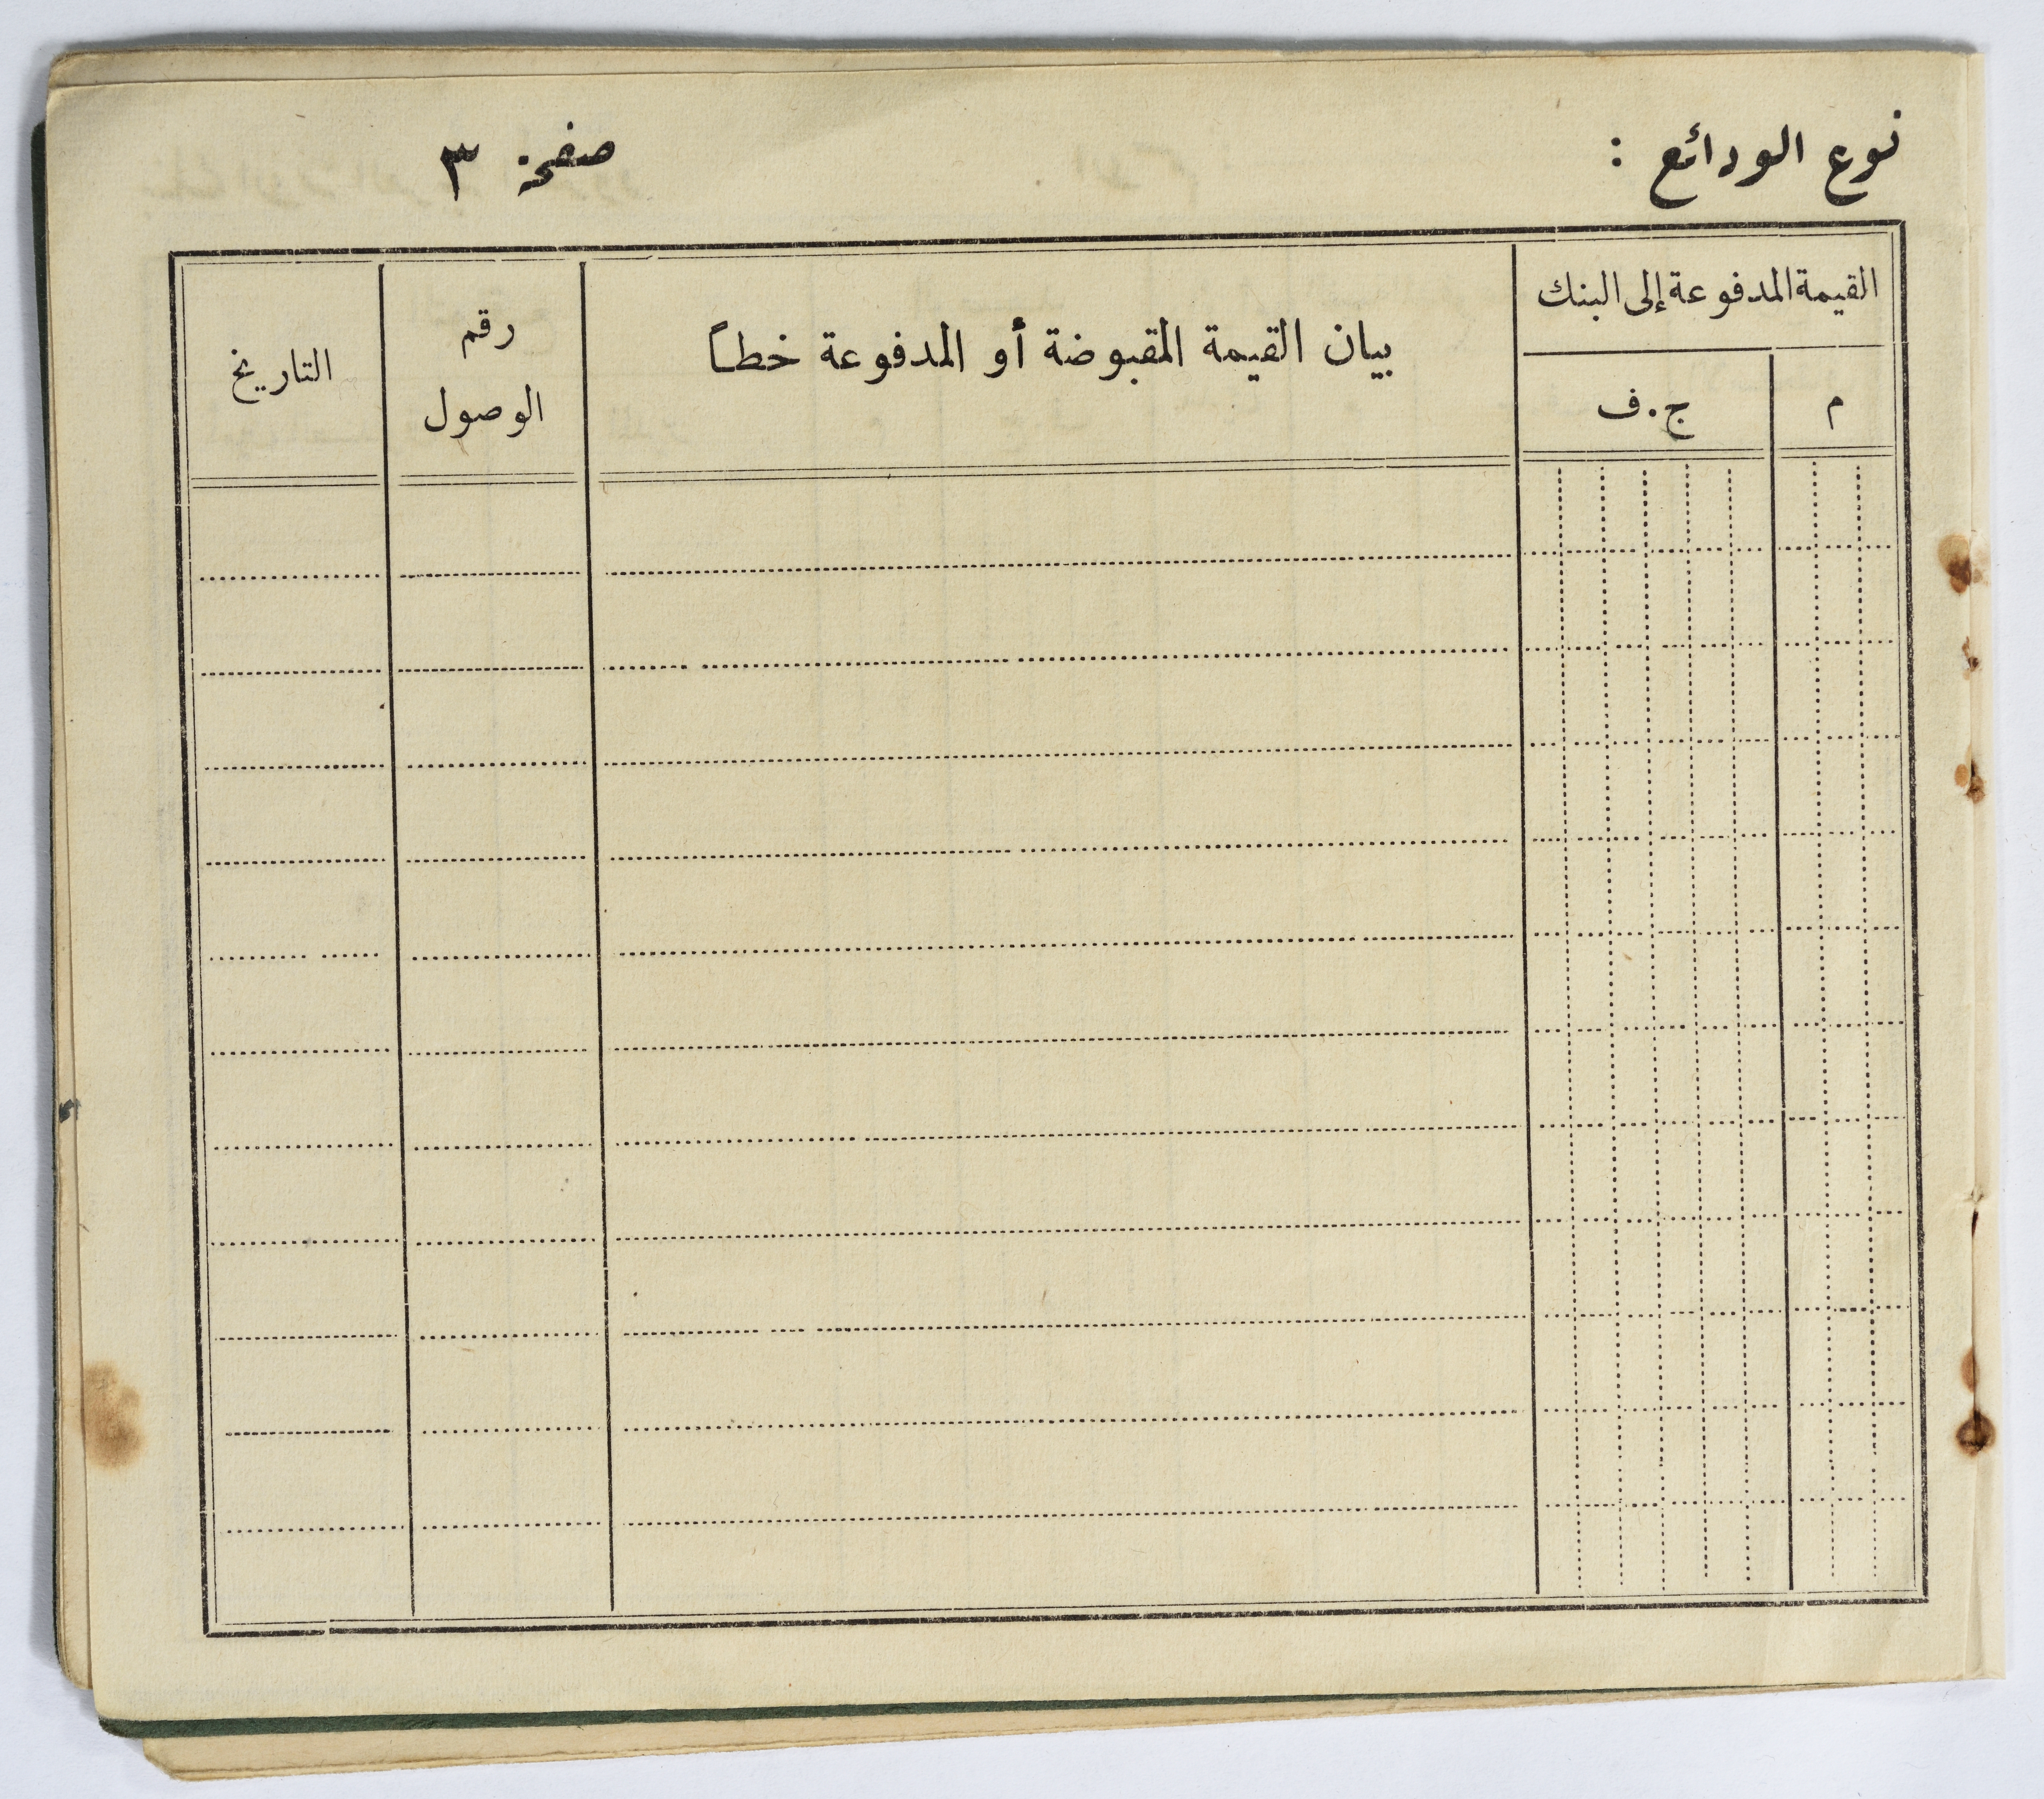 نوع الودائع :
صفحة ٣
القيمة المدفوعة إلى البنك
م
ج.ف
بيان القيمة المقبوضة أو المدفوعة خطاً
رقم
الوصول
التاريخ